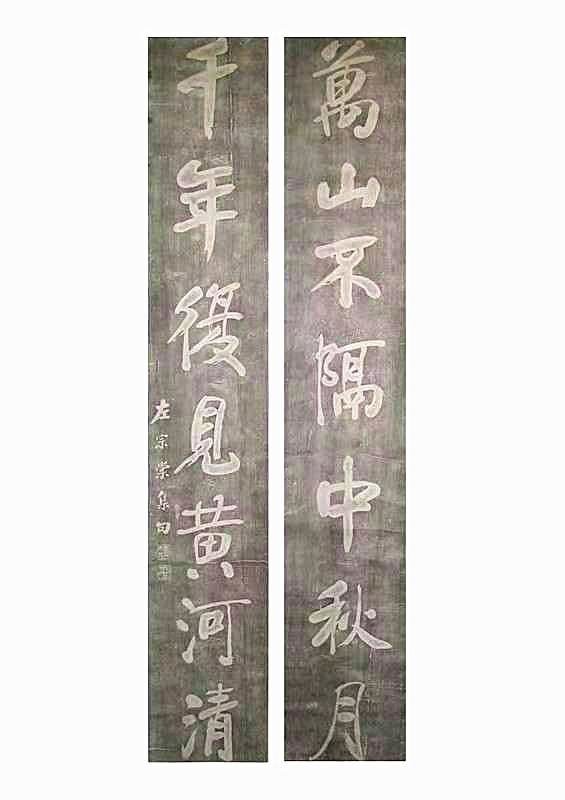 萬山不隔中秋月
千年復見黄河清
左宗棠集句